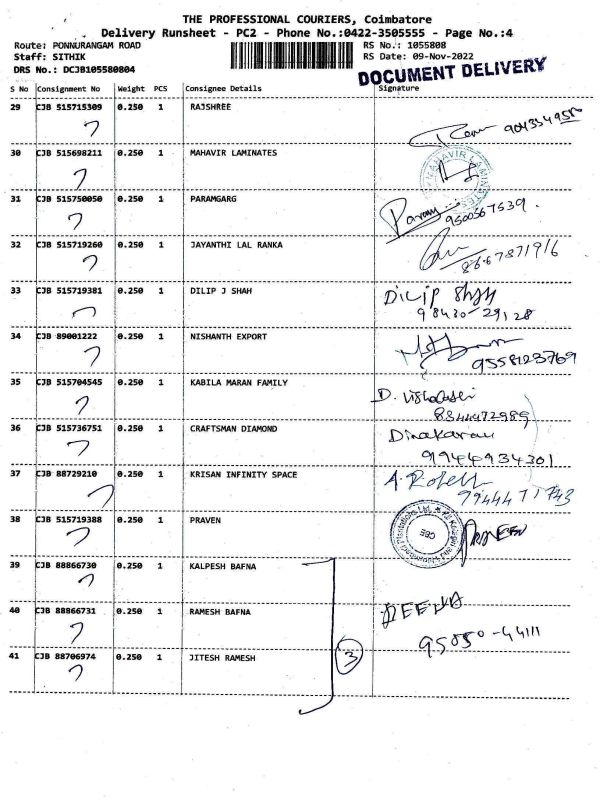 THE PROFESSIONAL COURIERS, Coimbatore
Delivery Runsheet - PC2 - Phone No.:0422-3505555 - Page No.:4
Route: PONNURANGAM ROAD
RS No.: 1055808
Staff: SITHIK
RS Date: 09-Nov-2022
DRS No.: DCJB105580804
DOCUMENT DELIVERY
S No Consignment No Weight PCS Consignee Details Signature
29 CJB 515715309 0.250 1 RAJSHREE
30 CJB 515698211 0.250 1 MAHAVIR LAMINATES
MAHAVIR LAMINATES
31 CJB 515750050 0.250 1 PARAMGARG
9500567539
32 CJB 515719260 0.250 1 JAYANTHI LAL RANKA
8667871916
33 CJB 515719381 0.250 1 DILIP J SHAH
DILIP Shah
98430-29128
34 CJB 89001222 0.250 1 NISHANTH EXPORT
9558123769
35 CJB 515704545 0.250 1 KABILA MARAN FAMILY
8844472989
36 CJB 515736751 0.250 1 CRAFTSMAN DIAMOND
Dinakaran
91944934301
37 CJB 88729210 0.250 1 KRISAN INFINITY SPACE
38 CJB 515719388 0.250 1 PRAVEN
CBE
39 CJB 88866730 0.250 1 KALPESH BAFNA
40 CJB 88866731 0.250 1 RAMESH BAFNA
95050-44111
41 CJB 88706974 0.250 1 JITESH RAMESH
3